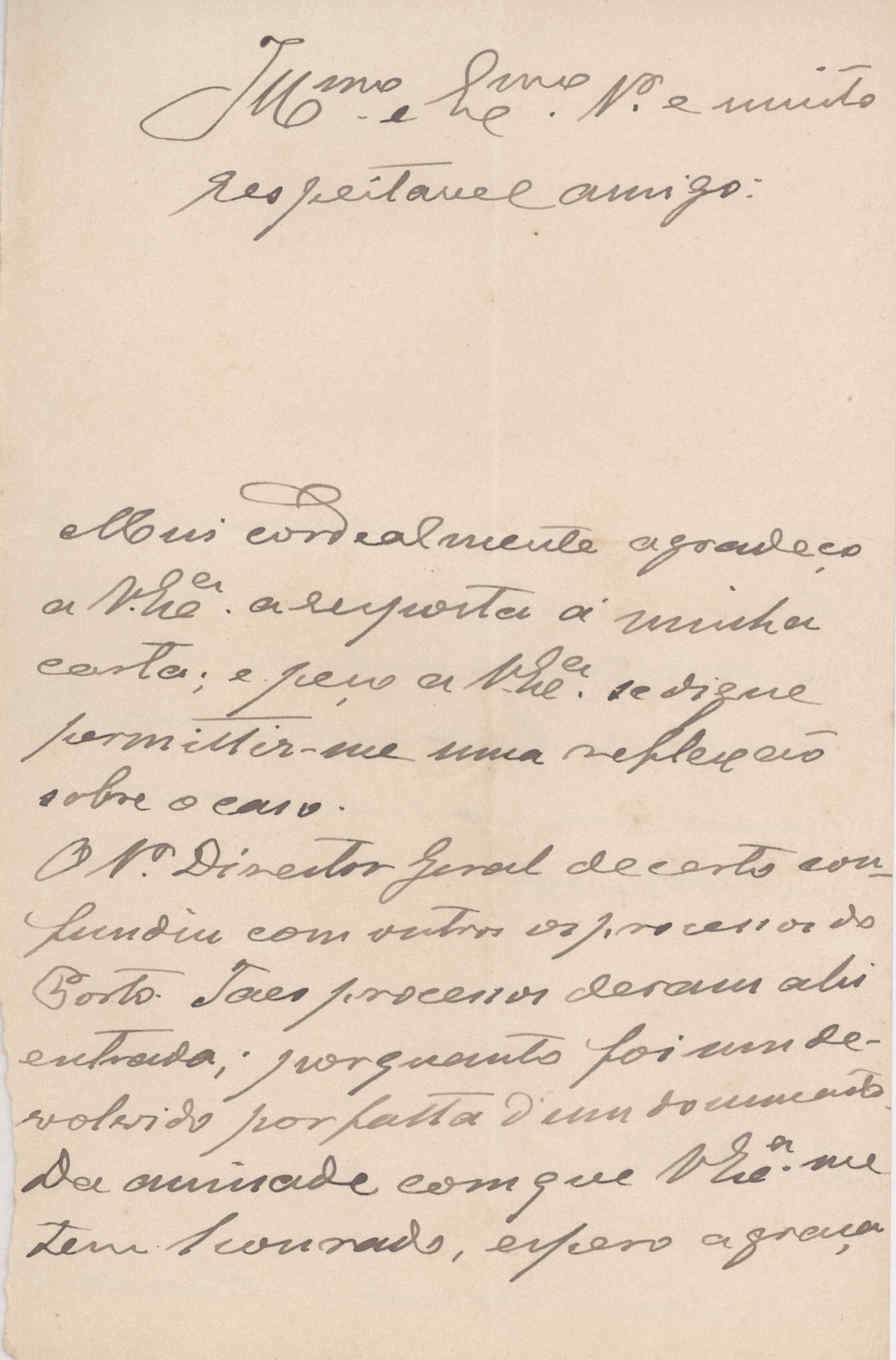 Illmo. e Exmo. Sr. e muito
respeitavel amigo:
Mui cordealmente agradeço
a V. Exca. a resposta á minha
carta; e peço a V. Exca. se digne
permittir-me uma reflexão
sobre o caso.
O Sr. Director Geral decerto con-
fundiu com outros os processos do
Porto. Taes processos deram ahi
entrada; porquanto foi um de-
volvido por falta d'um documento.
Da amisade com que V. Exca. me
tem honrado, espero a graça